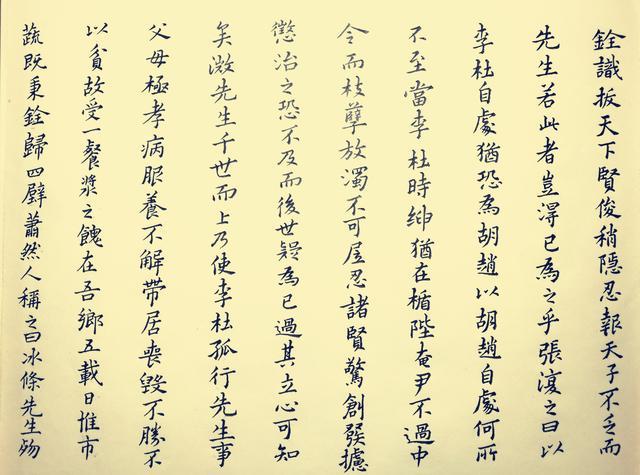 銓識扳天下賢俊稍隱忍報天子不乏而
先生若此者豈得已為之乎張溥之曰以
李杜自處猶恐為胡趙以胡趙自處何所
不至當李杜時紳猶在楯陛奄尹不過中
令而枝孽放濁不可屋忍諸賢驚創發攄
懲治之恐不及而後世疑為已過其立心可知
矣微先生千世而上乃使李杜孤行先生事
父母極孝病服養不解帶居喪毀不勝不
以貧故受一餐漿之餽在吾鄉五載日惟市
蔬既秉銓歸四壁蕭然人稱之曰冰條先生歿